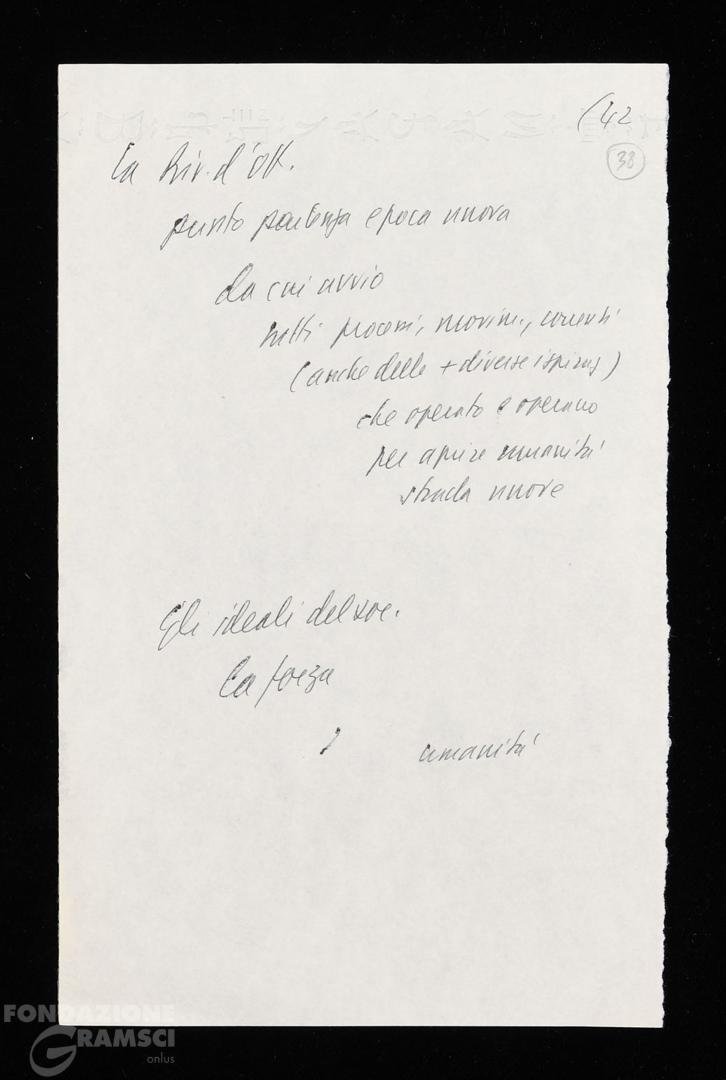 (42
38
La Riv. d'Ott.
punto partenza epoca nuova
da cui avvio
tutti processi, movim., correnti
(anche delle + diverse ispiraz)
che operato e operano
per aprire umanità
strada nuova
Gli ideali del soc.
La forza
umanità
FONDAZIONE
GRAMSCI
onlus